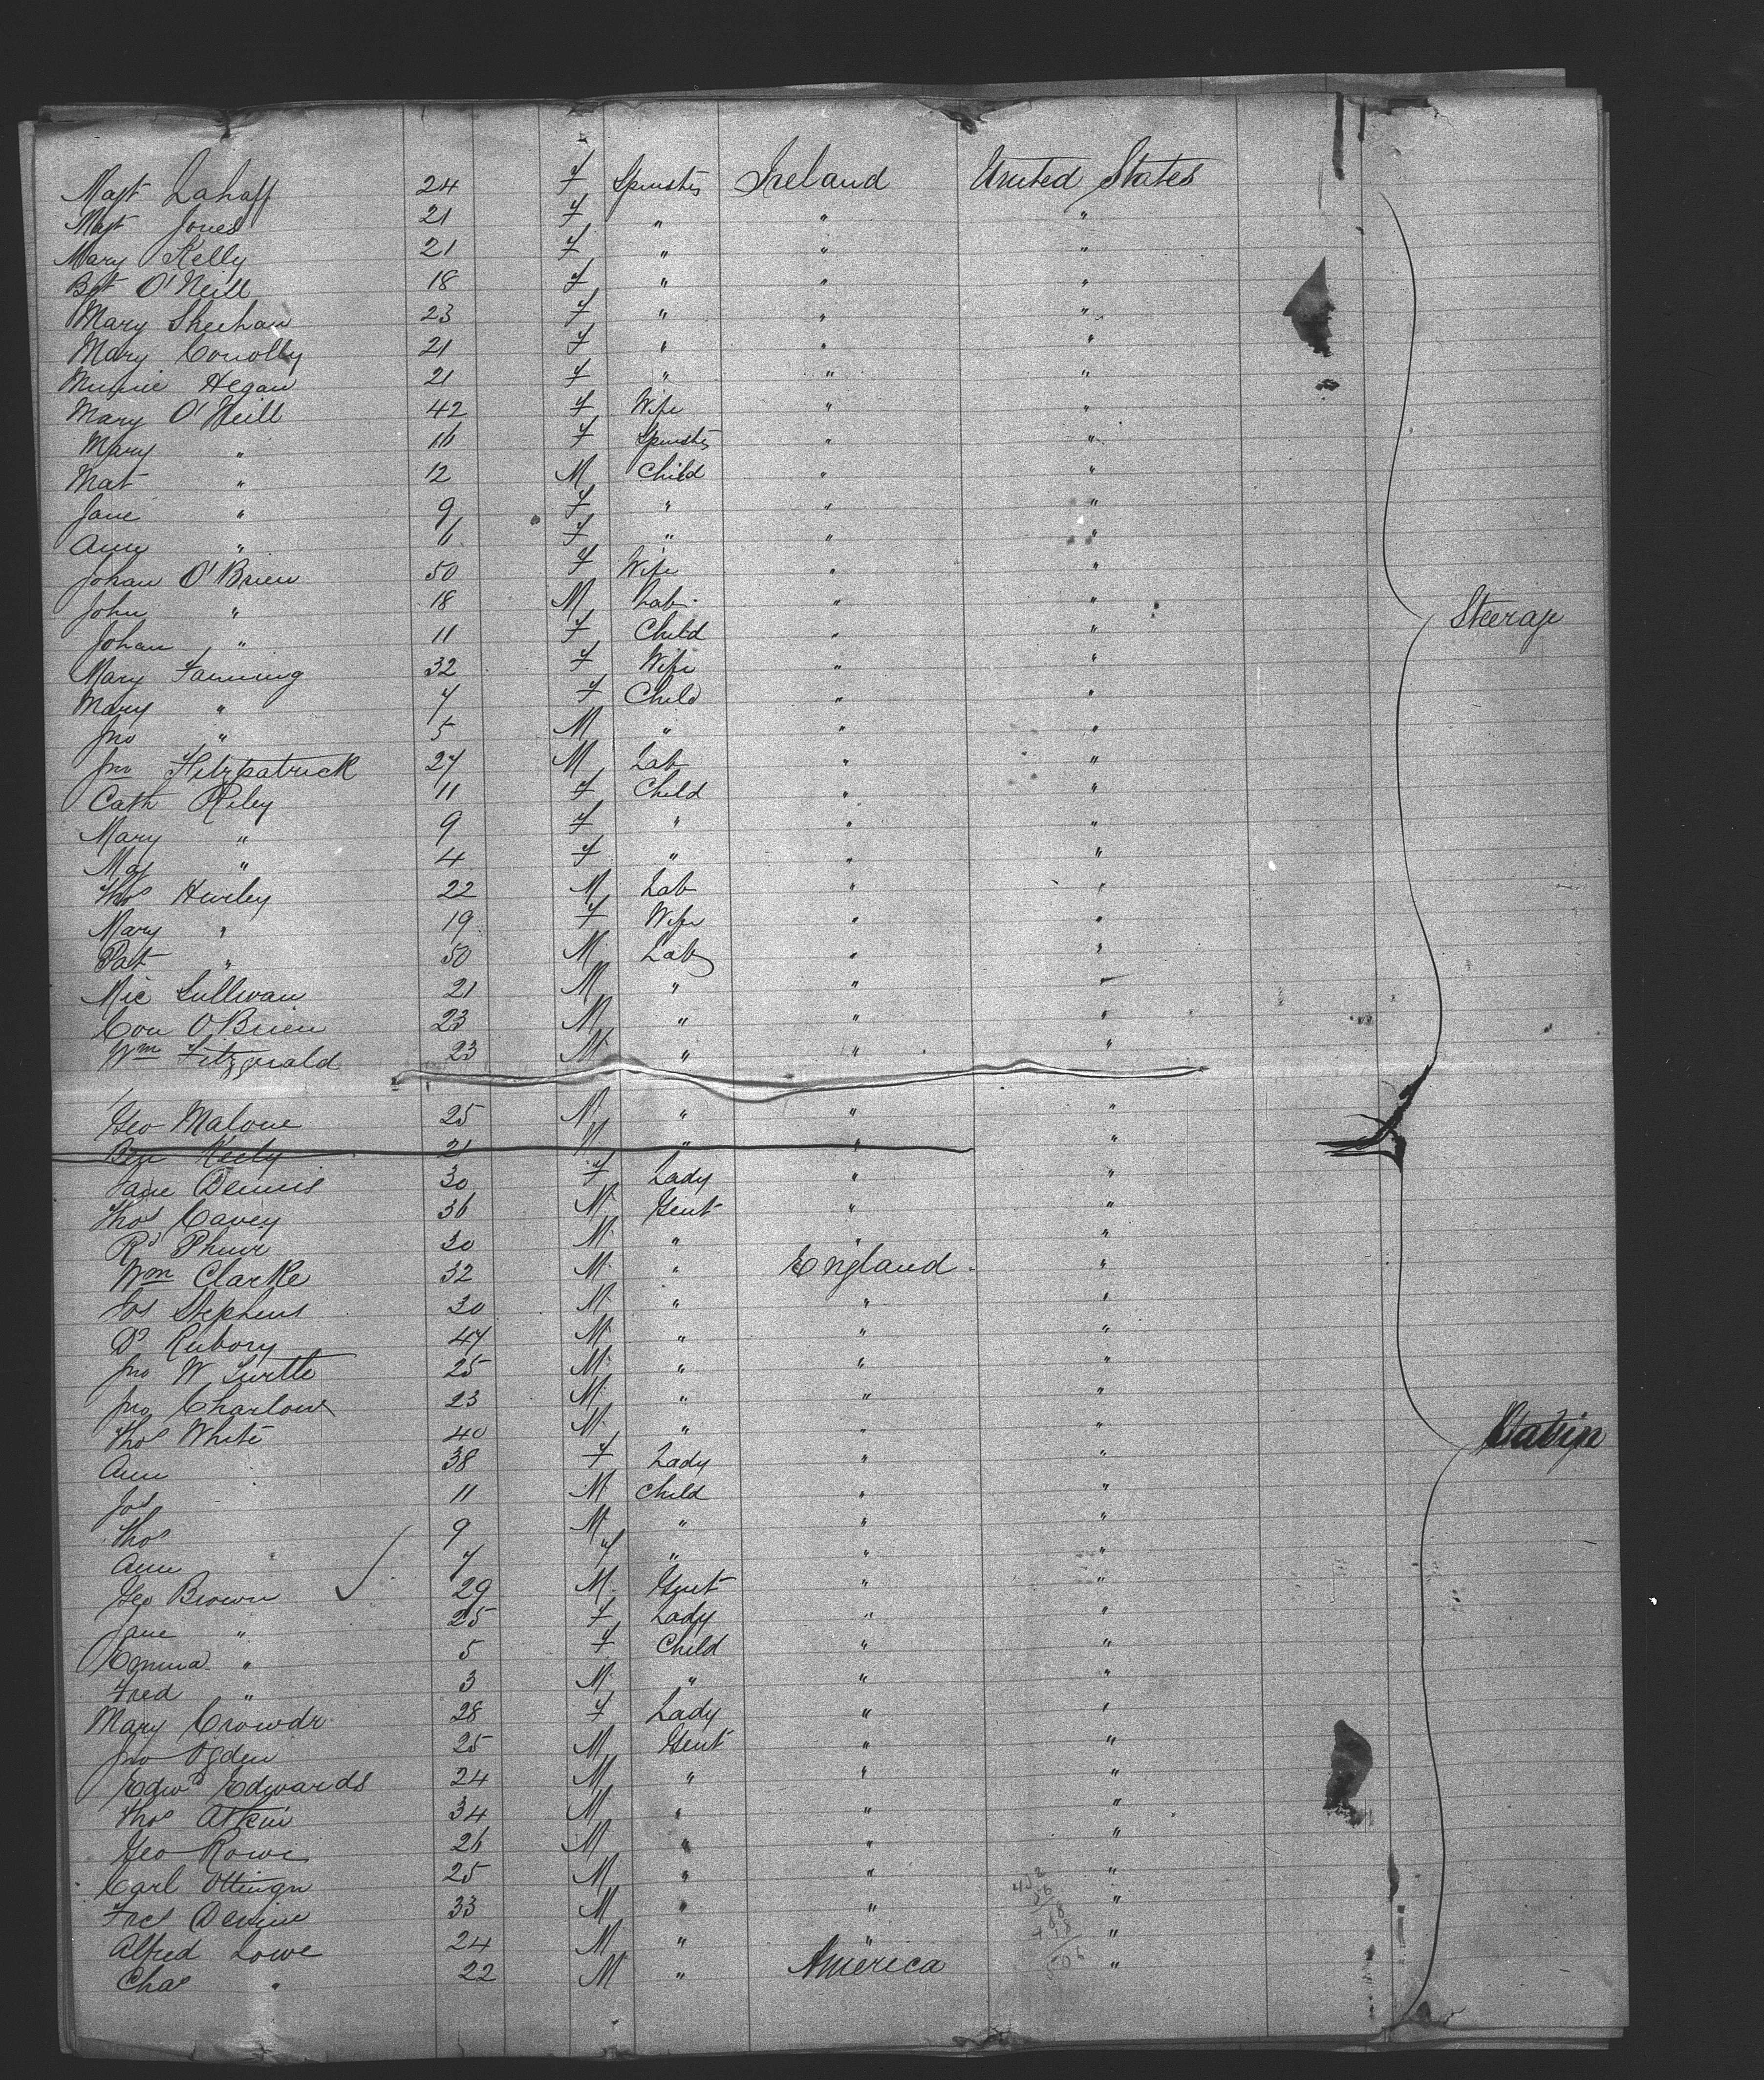 Magt Lahaff 24 F Spinster Ireland United States
Magt Jones 21 F " " "
Mary Kelly 21 F " " "
Bgt O'Neill 18 F " " "
Mary Sheehan 23 F " " "
Mary Conolly 21 F " " "
Minnie Hegan 21 F " " "
Mary O'Neill 42 F Wife " "
Mary " 16 F Spinster " "
Mat " 12 M Child " "
Jane " 9 F " " "
Ann " 6 F " " "
Johan O'Brien 50 F Wife " "
John " 18 M Lab " "
Johan " 11 F Child " " Steerage
Mary Fanning 32 F Wife " "
Mary " 7 F Child " "
Jno " 5 M " " "
Jno Fitzpatrick 27 M Lab " "
Cath Riley 11 F Child " "
Mary " 9 F " " "
Mag " 4 F " " "
Thos Hurley 22 M Lab " "
Mary " 19 F Wife " "
Pat " 50 M Lab " "
Mic Sullivan 21 M " " "
Con O'Brien 23 M " " "
Wm Fitzgerald 23 M " " "
Geo Malone 25 M " " "
Ben Keely 21 M " " "
Jane Dennis 30 F Lady " "
Thos Cavey 36 M Gent " "
Rd 30 M " " "
Wm Clarke 32 M " England "
Jos Stephens 30 M " " "
Dd Rubory 47 M " " "
Jno W Turtle 25 M " " "
Jno Charlown 23 M " " "
Thos White 40 M " " "
Ann 38 F Lady " "
Jos 11 M Child " "
Thos 9 M " " "
Ann 7 F " " "
Geo Brown 29 M Gent " "
Jane " 25 F Lady " "
Emma " 5 F Child " "
Fred " 3 M " " "
Mary Crowdr 28 F Lady " "
Jno Ogden 25 M Gent " "
Edwd Edwards 24 M " " "
Thos Atkin 34 M " " "
Geo Rowe 26 M " " "
Carl Ottingn 25 M " " "
Fred Devine 33 M " " "
Alfred Lowe 24 M " " "
Chas " 22 M " America "